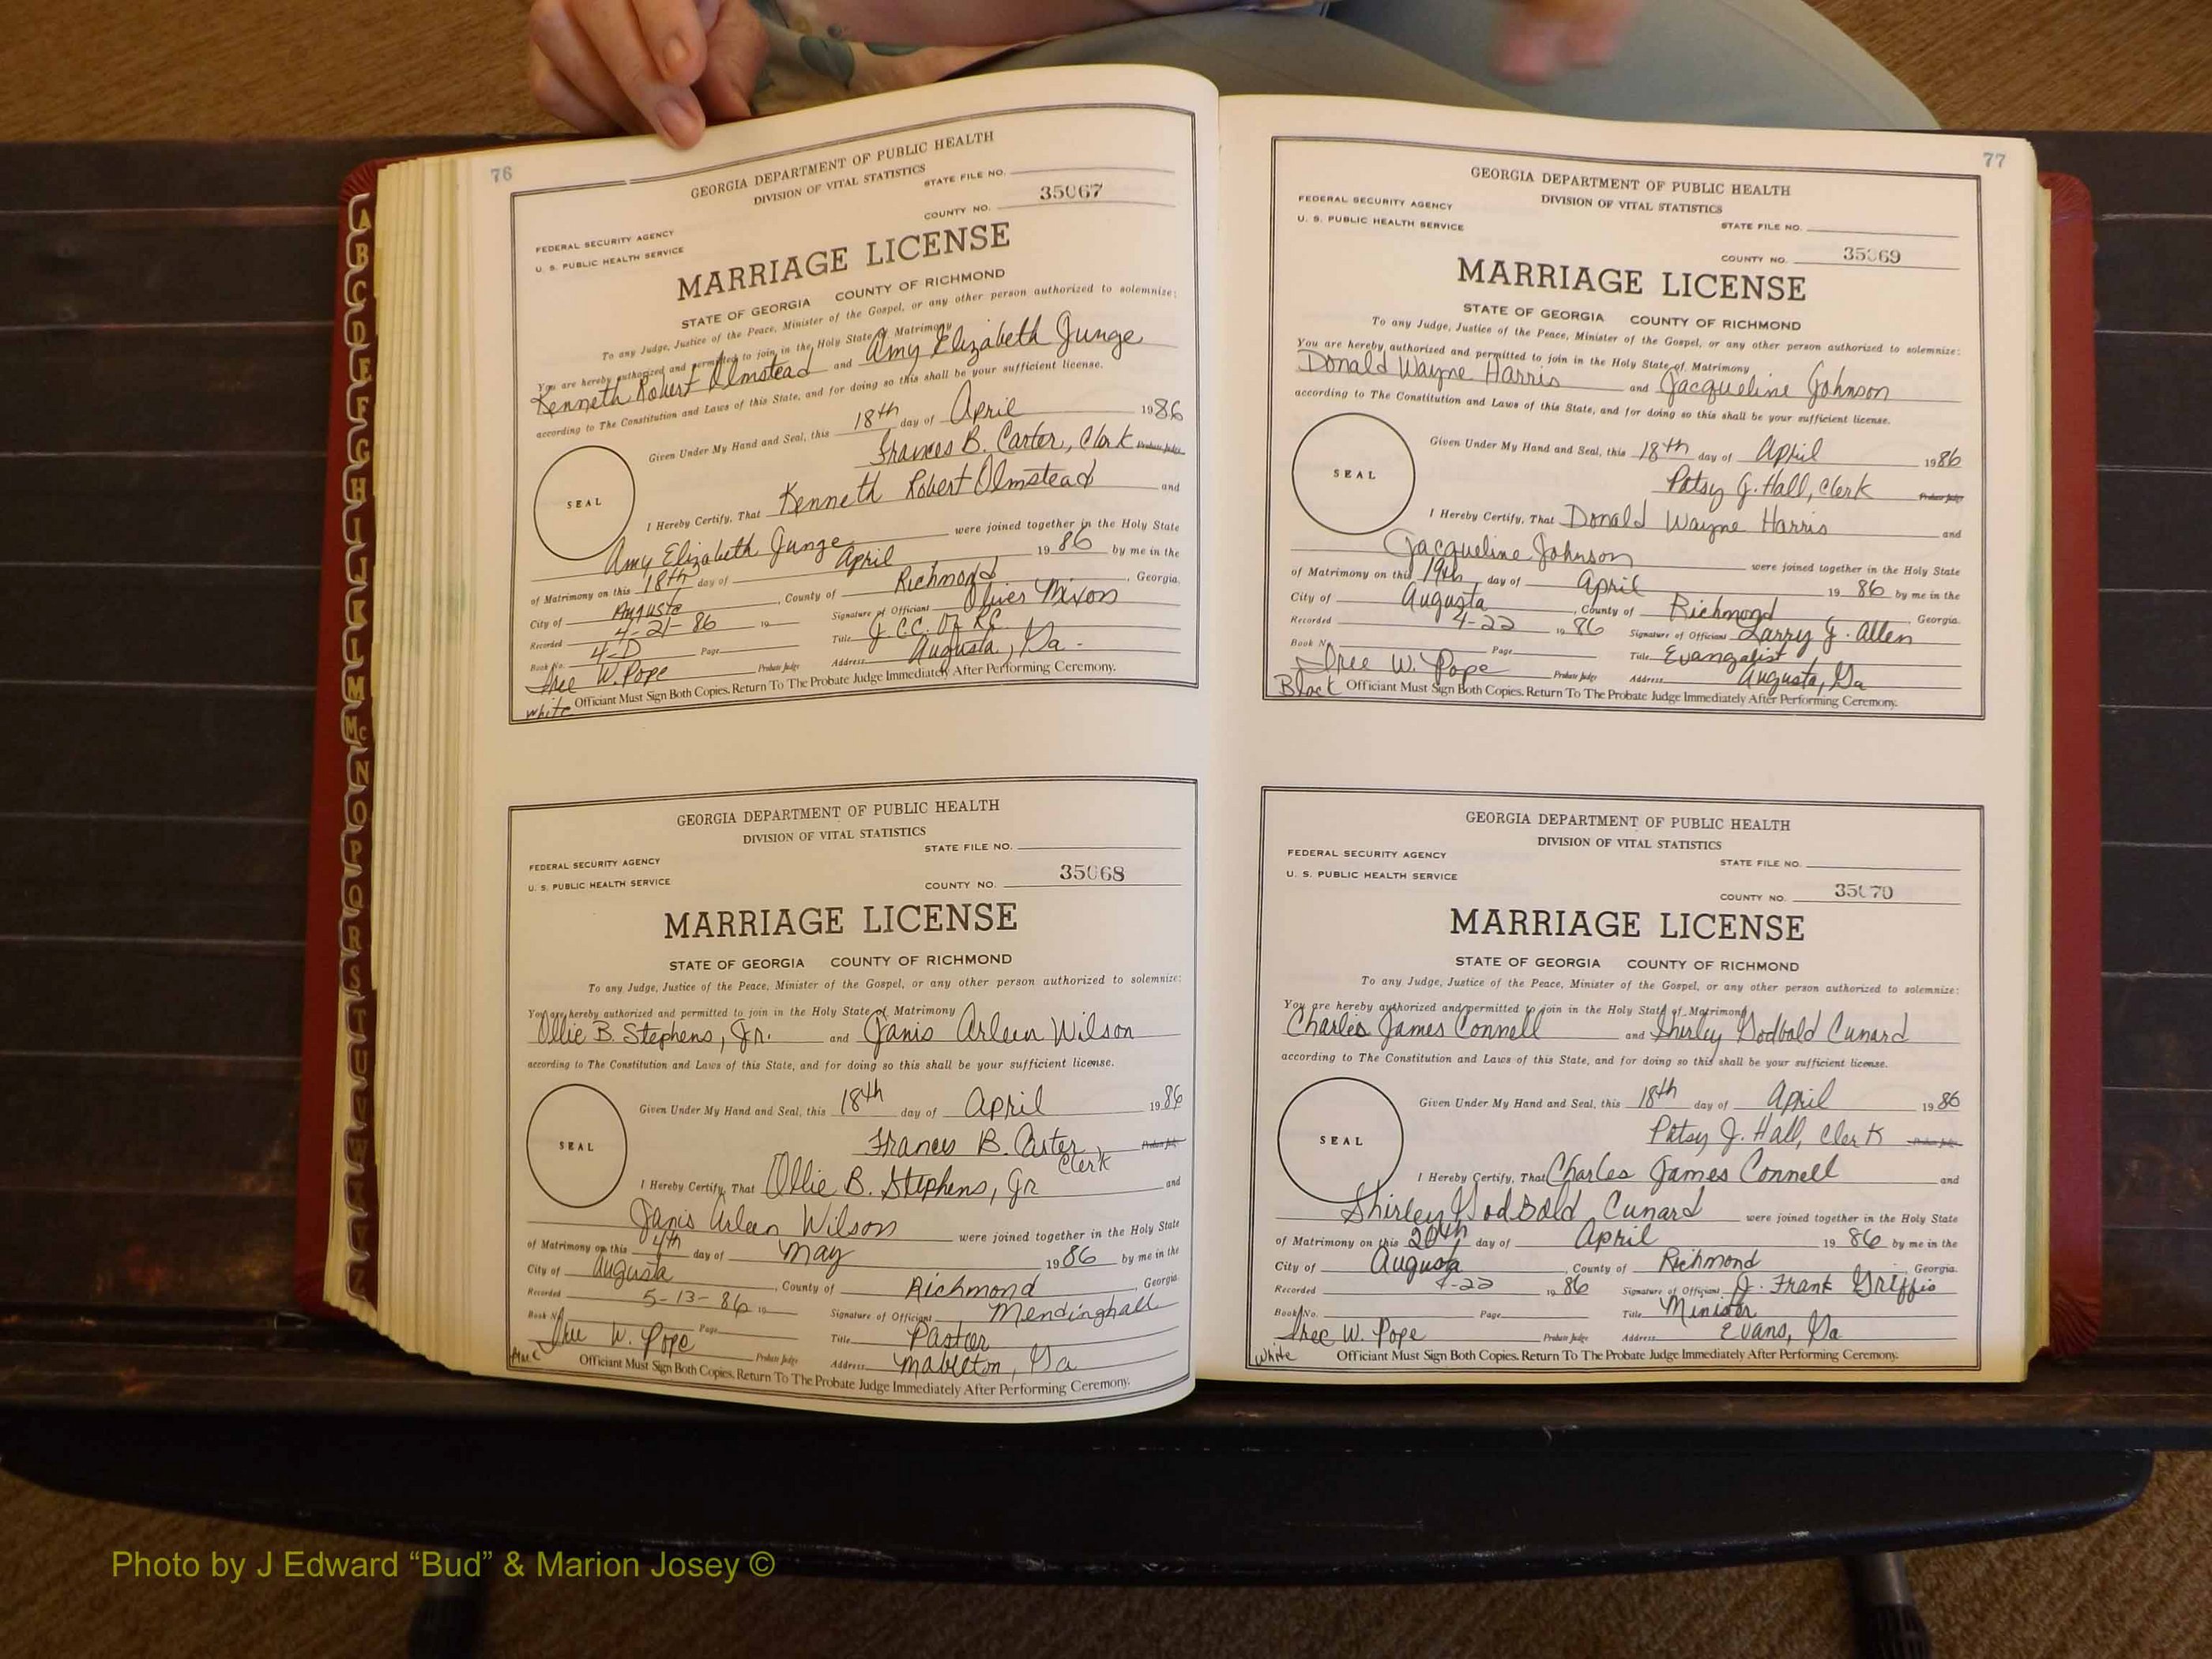 76
GEORGIA DEPARTMENT OF PUBLIC HEALTH
DIVISION OF VITAL STATISTICS
STATE FILE NO.
FEDERAL SECURITY AGENCY
U. S. PUBLIC HEALTH SERVICE
COUNTY NO. 35067
MARRIAGE LICENSE
STATE OF GEORGIA COUNTY OF RICHMOND
To any Judge, Justice of the Peace, Minister of the Gospel, or any other person authorized to solemnize:
You are hereby authorized and permitted to join in the Holy State of Matrimony
Kenneth Robert Olmstead and Amy Elizabeth Junge
according to The Constitution and Laws of this State, and for doing so this shall be your sufficient license.
Given Under My Hand and Seal, this 18th day of April 1986
Frances B. Carter, Clerk Probate Judge
SEAL
I Hereby Certify, That Kenneth Robert Olmstead and
Amy Elizabeth Junge were joined together in the Holy State
of Matrimony on this 18th day of April 1986 by me in the
City of Augusta, County of Richmond, Georgia.
Recorded 4-21-86 19 Signature of Officiant Oliver Mixon
Book No. 4-D Page Title J.C.C. of R.C.
Iree W. Pope Probate Judge Address Augusta, Ga.
White Officiant Must Sign Both Copies. Return To The Probate Judge Immediately After Performing Ceremony.
GEORGIA DEPARTMENT OF PUBLIC HEALTH
DIVISION OF VITAL STATISTICS
STATE FILE NO.
FEDERAL SECURITY AGENCY
U. S. PUBLIC HEALTH SERVICE
COUNTY NO. 35068
MARRIAGE LICENSE
STATE OF GEORGIA COUNTY OF RICHMOND
To any Judge, Justice of the Peace, Minister of the Gospel, or any other person authorized to solemnize:
You are hereby authorized and permitted to join in the Holy State of Matrimony
Ollie B. Stephens, Jr. and Janis Arleen Wilson
according to The Constitution and Laws of this State, and for doing so this shall be your sufficient license.
Given Under My Hand and Seal, this 18th day of April 1986
Frances B. Carter Probate Judge
Clerk
SEAL
I Hereby Certify, That Ollie B. Stephens, Jr and
Janis Arleen Wilson were joined together in the Holy State
of Matrimony on this 4th day of May 1986 by me in the
City of Augusta, County of Richmond, Georgia.
Recorded 5-13-86 19 Signature of Officiant Mendinghall
Book No. Page Title Pastor
Iree W. Pope Probate Judge Address Mableton, Ga
Officiant Must Sign Both Copies. Return To The Probate Judge Immediately After Performing Ceremony.
77
GEORGIA DEPARTMENT OF PUBLIC HEALTH
DIVISION OF VITAL STATISTICS
FEDERAL SECURITY AGENCY
U. S. PUBLIC HEALTH SERVICE
STATE FILE NO.
COUNTY NO. 35069
MARRIAGE LICENSE
STATE OF GEORGIA COUNTY OF RICHMOND
To any Judge, Justice of the Peace, Minister of the Gospel, or any other person authorized to solemnize:
You are hereby authorized and permitted to join in the Holy State of Matrimony
Donald Wayne Harris and Jacqueline Johnson
according to The Constitution and Laws of this State, and for doing so this shall be your sufficient license.
Given Under My Hand and Seal, this 18th day of April 1986
Patsy J. Hall, Clerk Probate Judge
SEAL
I Hereby Certify, That Donald Wayne Harris and
Jacqueline Johnson were joined together in the Holy State
of Matrimony on this 19th day of April 1986 by me in the
City of Augusta, County of Richmond, Georgia.
Recorded 4-22 1986 Signature of Officiant Larry J. Allen
Book No. Page Title Evangalist
Iree W. Pope Probate Judge Address Augusta, Ga
Black Officiant Must Sign Both Copies. Return To The Probate Judge Immediately After Performing Ceremony.
GEORGIA DEPARTMENT OF PUBLIC HEALTH
DIVISION OF VITAL STATISTICS
FEDERAL SECURITY AGENCY
U. S. PUBLIC HEALTH SERVICE
STATE FILE NO.
COUNTY NO. 35070
MARRIAGE LICENSE
STATE OF GEORGIA COUNTY OF RICHMOND
To any Judge, Justice of the Peace, Minister of the Gospel, or any other person authorized to solemnize:
You are hereby authorized and permitted to join in the Holy State of Matrimony
Charles James Connell and Shirley Godbold Cunard
according to The Constitution and Laws of this State, and for doing so this shall be your sufficient license.
Given Under My Hand and Seal, this 18th day of April 1986
Patsy J. Hall, Clerk Probate Judge
SEAL
I Hereby Certify, That Charles James Connell and
Shirley Godbold Cunard were joined together in the Holy State
of Matrimony on this 20th day of April 1986 by me in the
City of Augusta, County of Richmond, Georgia.
Recorded 4-22 1986 Signature of Officiant J. Frank Griffis
Book No. Page Title Minister
Iree W. Pope Probate Judge Address Evans, Ga
White Officiant Must Sign Both Copies. Return To The Probate Judge Immediately After Performing Ceremony.
A
B
C
D
E
F
G
H
I
J
K
L
M
Mc
N
O
P
Q
R
S
T
U
V
W
X
Y
Z
Photo by J Edward “Bud” & Marion Josey ©